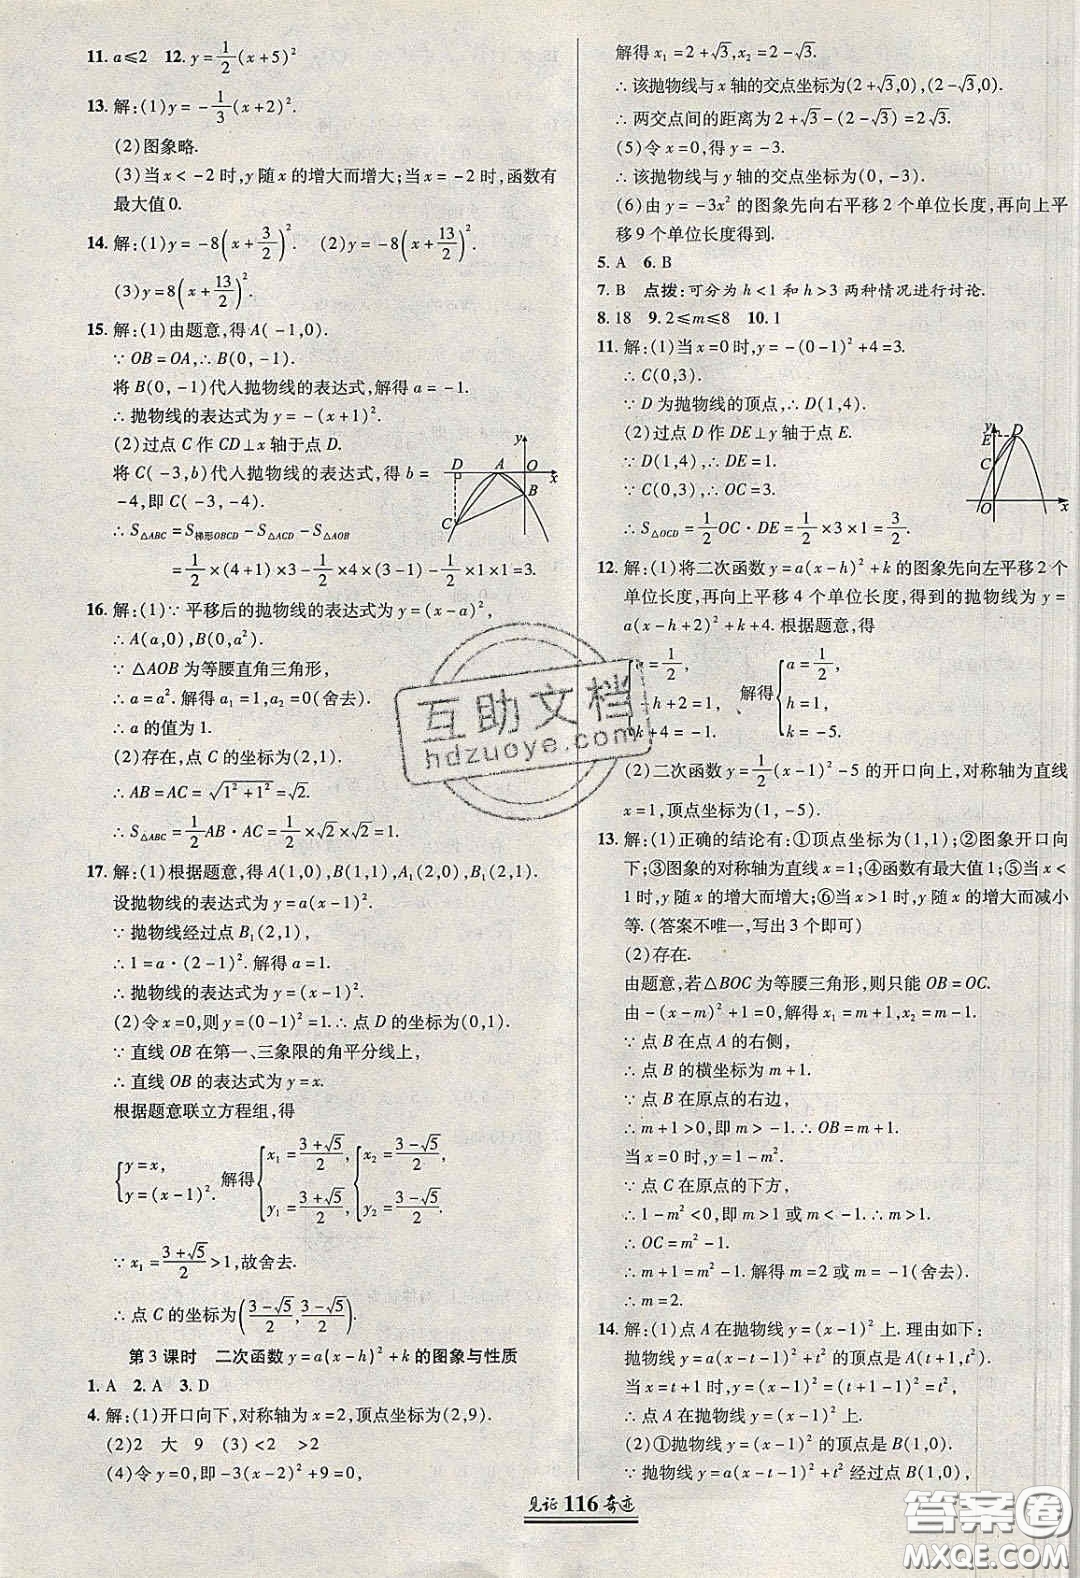 11. a≤2　12. y=1/2(x+5)²
13. 解:(1)y=-1/3(x+2)².
(2)图象略.
(3)当x<-2时,y随x的增大而增大;当x=-2时,函数有
最大值0.
14. 解:(1)y=-8(x+3/2)².　(2)y=-8(x+13/2)².
(3)y=8(x+13/2)².
15. 解:(1)由题意,得A(-1,0).
∵OB=OA,∴B(0,-1).
将B(0,-1)代入抛物线的表达式,解得a=-1.
∴抛物线的表达式为y=-(x+1)².
(2)过点C作CD⊥x轴于点D.
将C(-3,b)代入抛物线的表达式,得b=
-4,即C(-3,-4).
∴S△ABC=S梯形OBCD-S△ACD-S△AOB
=1/2×(4+1)×3-1/2×4×(3-1)-1/2×1×1=3.
y
D A O x
B
C
16. 解:(1)∵平移后的抛物线的表达式为y=(x-a)²,
∴A(a,0),B(0,a²).
∵△AOB为等腰直角三角形,
∴a=a².解得a₁=1,a₂=0(舍去).
∴a的值为1.
(2)存在,点C的坐标为(2,1).
∴AB=AC=√(1²+1²)=√2.
∴S△ABC=1/2AB·AC=1/2×√2×√2=1.
17. 解:(1)根据题意,得A(1,0),B(1,1),A₁(2,0),B₁(2,1).
设抛物线的表达式为y=a(x-1)².
∵抛物线经过点B₁(2,1),
∴1=a·(2-1)².解得a=1.
∴抛物线的表达式为y=(x-1)².
(2)令x=0,则y=(0-1)²=1.∴点D的坐标为(0,1).
∵直线OB在第一、三象限的角平分线上,
∴直线OB的表达式为y=x.
根据题意联立方程组,得
{y=x, y=(x-1)². 解得{x₁=(3+√5)/2, y₁=(3+√5)/2, {x₂=(3-√5)/2, y₂=(3-√5)/2.
∵x₁=(3+√5)/2>1,故舍去.
∴点C的坐标为((3-√5)/2,(3-√5)/2).
第3课时　二次函数y=a(x-h)²+k的图象与性质
1. A　2. A　3. D
4. 解:(1)开口向下,对称轴为x=2,顶点坐标为(2,9).
(2)2　大　9　(3)<2　>2
(4)令y=0,即-3(x-2)²+9=0,
解得x₁=2+√3,x₂=2-√3.
∴该抛物线与x轴的交点坐标为(2+√3,0),(2-√3,0).
∴两交点间的距离为2+√3-(2-√3)=2√3.
(5)令x=0,得y=-3.
∴该抛物线与y轴的交点坐标为(0,-3).
(6)由y=-3x²的图象先向右平移2个单位长度,再向上平
移9个单位长度得到.
5. A　6. B
7. B　点拨:可分为h<1和h>3两种情况进行讨论.
8. 18　9. 2≤m≤8　10. 1
11. 解:(1)当x=0时,y=-(0-1)²+4=3.
∴C(0,3).
∵D为抛物线的顶点,∴D(1,4).
(2)过点D作DE⊥y轴于点E.
∵D(1,4),∴DE=1.
∵C(0,3),∴OC=3.
∴S△OCD=1/2OC·DE=1/2×3×1=3/2.
y
E D
C
O x
12. 解:(1)将二次函数y=a(x-h)²+k的图象先向左平移2个
单位长度,再向上平移4个单位长度,得到的抛物线为y=
a(x-h+2)²+k+4.根据题意,得
{a=1/2, -h+2=1, k+4=-1. 解得{a=1/2, h=1, k=-5.
(2)二次函数y=1/2(x-1)²-5的开口向上,对称轴为直线
x=1,顶点坐标为(1,-5).
13. 解:(1)正确的结论有:①顶点坐标为(1,1);②图象开口向
下;③图象的对称轴为直线x=1;④函数有最大值1;⑤当x<
1时,y随x的增大而增大;⑥当x>1时,y随x的增大而减小
等.(答案不唯一,写出3个即可)
(2)存在.
由题意,若△BOC为等腰三角形,则只能OB=OC.
由-(x-m)²+1=0,解得x₁=m+1,x₂=m-1.
∵点B在点A的右侧,
∴点B的横坐标为m+1.
∵点B在原点的右边,
∴m+1>0,即m>-1.∴OB=m+1.
当x=0时,y=1-m².
∵点C在原点的下方,
∴1-m²<0,即m>1或m<-1.∴m>1.
∴OC=m²-1.
∴m+1=m²-1.解得m=2或m=-1(舍去).
∴m=2.
14. 解:(1)点A在抛物线y=(x-1)²上.理由如下:
抛物线y=a(x-t-1)²+t²的顶点是A(t+1,t²).
当x=t+1时,y=(x-1)²=(t+1-1)²=t²,
∴点A在抛物线y=(x-1)²上.
(2)①抛物线y=(x-1)²的顶点是B(1,0).
∵抛物线y=a(x-t-1)²+t²经过点B(1,0),
见证116奇迹
互助文档
hdzuoye.com
答案圈
MXQE.COM